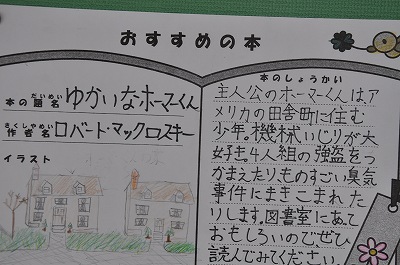 おすすめの本
だいめい
本の題名 ゆかいなホーマーくん
さくしゃめい
作者名 ロバート・マックロスキー
イラスト
本のしょうかい
主人公のホーマーくんはア
メリカの田舎町に住む
少年。機械いじりが大
好き。4人組の強盗をつ
かまえたりものすごい臭気
事件にまきこまれた
りします。図書室にあて
おもしろいのでぜひ
読んでみてください。